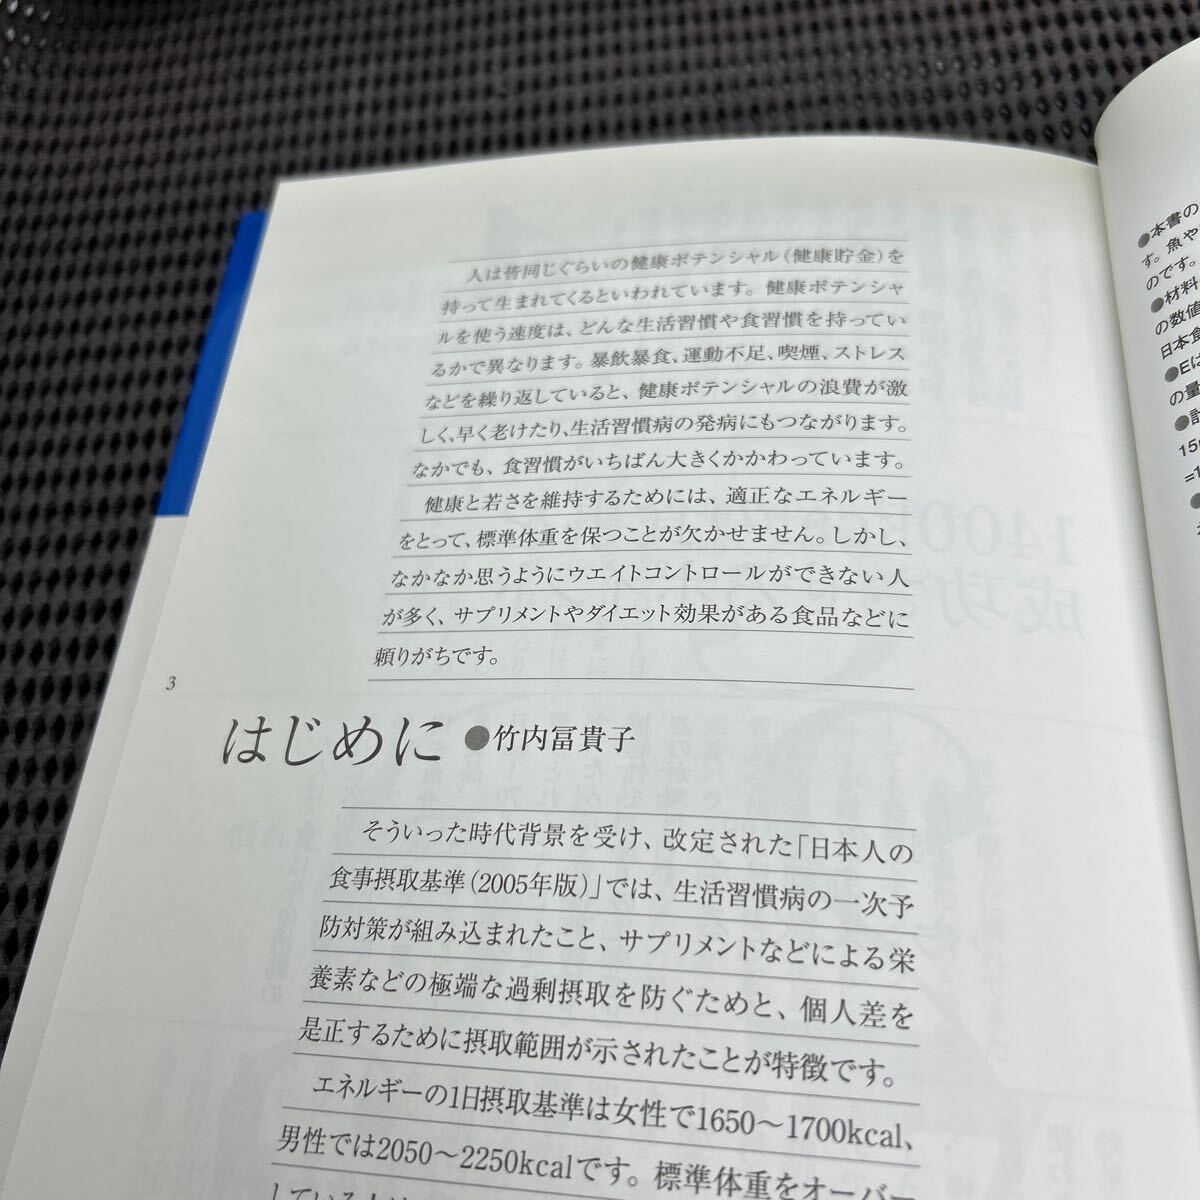 人は皆同じぐらいの健康ポテンシャル(健康貯金)を
持って生まれてくるといわれています。健康ポテンシャ
ルを使う速度は、どんな生活習慣や食習慣を持ってい
るかで異なります。暴飲暴食、運動不足、喫煙、ストレス
などを繰り返していると、健康ポテンシャルの浪費が激
しく、早く老けたり、生活習慣病の発病にもつながります。
なかでも、食習慣がいちばん大きくかかわっています。
健康と若さを維持するためには、適正なエネルギー
をとって、標準体重を保つことが欠かせません。しかし、
なかなか思うようにウエイトコントロールができない人
が多く、サプリメントやダイエット効果がある食品などに
頼りがちです。
3
はじめに ●竹内冨貴子
そういった時代背景を受け、改定された「日本人の
食事摂取基準(2005年版)」では、生活習慣病の一次予
防対策が組み込まれたこと、サプリメントなどによる栄
養素などの極端な過剰摂取を防ぐためと、個人差を
是正するために摂取範囲が示されたことが特徴です。
エネルギーの1日摂取基準は女性で1650〜1700kcal、
男性では2050〜2250kcalです。標準体重をオーバー
している人は
●本書の
す。魚や
のです。
●材料
の数値
日本食
●Eは
の量
●計
150
=1
●